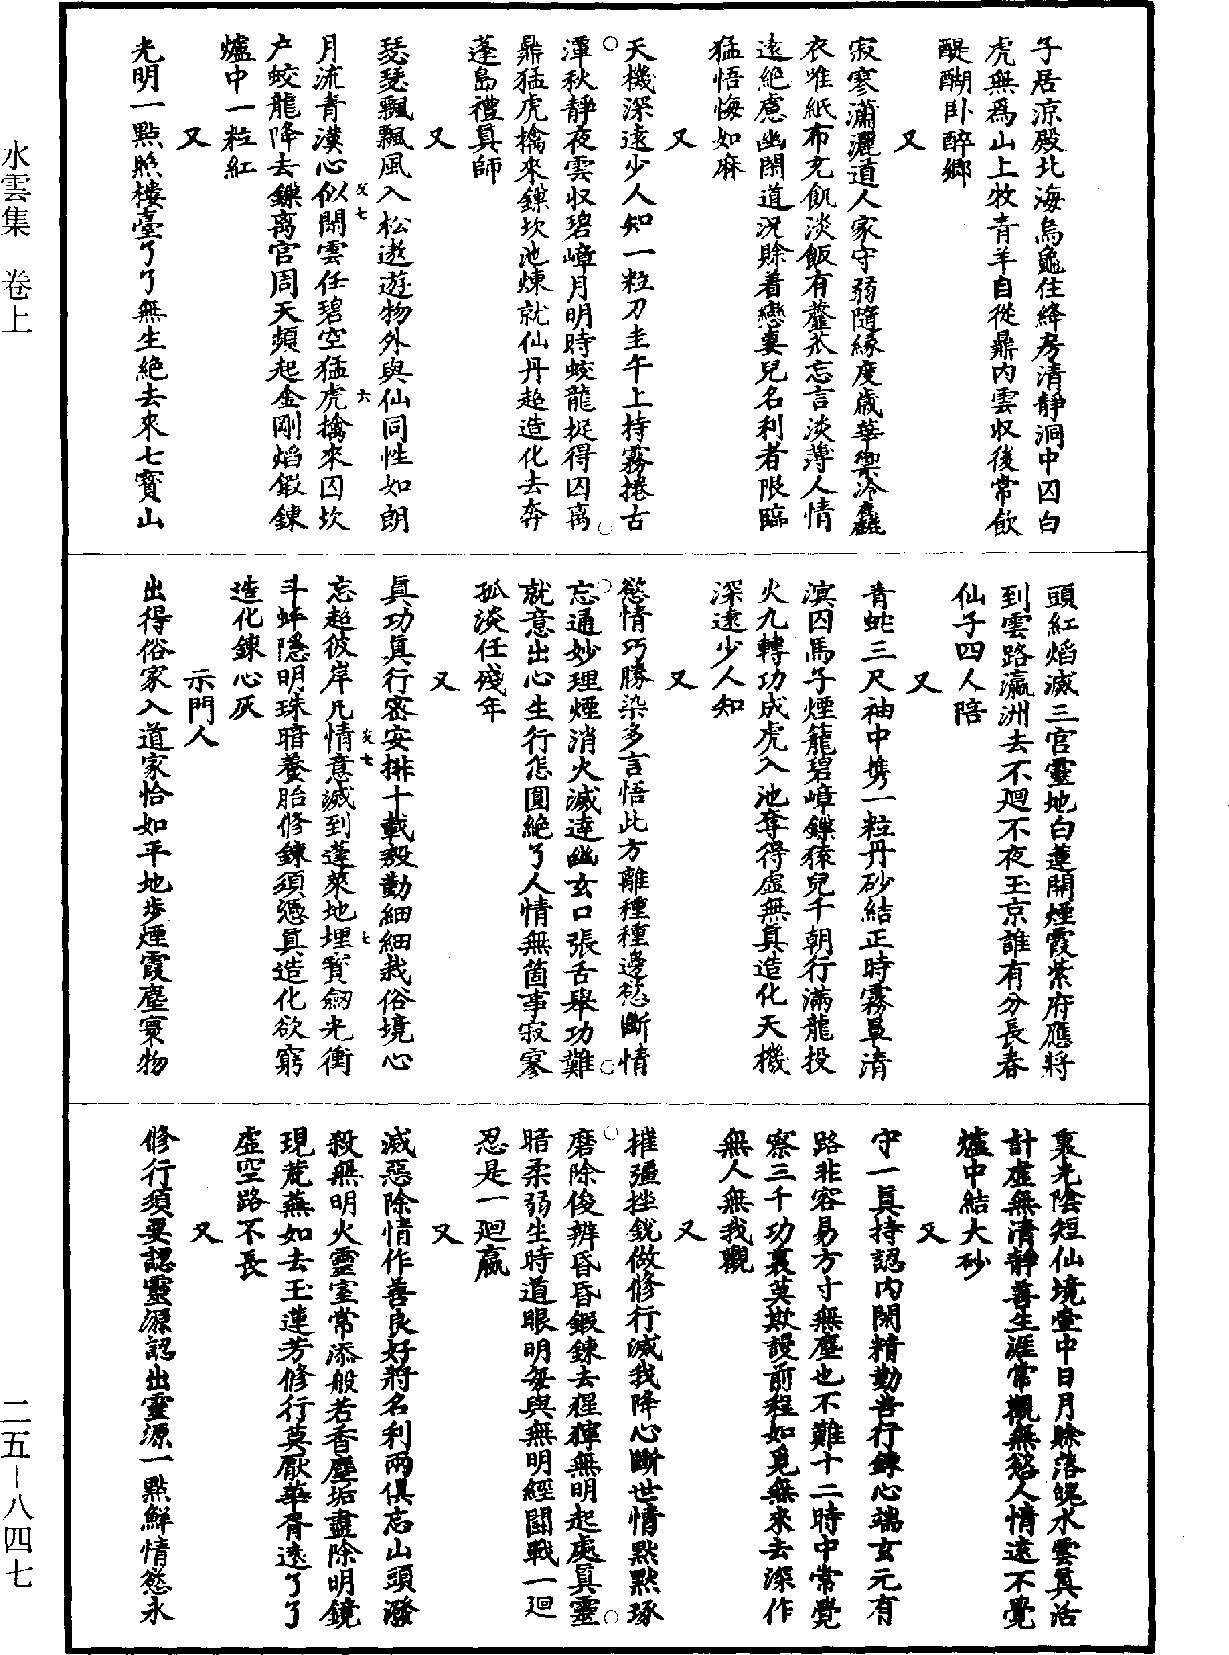 子居涼殿北海烏龜住絳房清靜洞中囚白
虎無爲山上牧青羊自從鼎内雲収後常飲
醍醐卧醉鄉
又
寂寥瀟灑道人家守弱隨緣度歲華禦冷麤
衣唯紙布充飢淡飯有虀爪忘言淡薄人情
遠絕慮幽閑道況賒着戀妻兒名利者限臨
猛悟悔如麻
又
天機深遠少人知一粒刀圭午上持霧捲古
潭秋靜夜雲収碧嶂月明時蛟龍捉得囚离
鼎猛虎擒來鏁坎池煉就仙丹超造化去奔
蓬島禮真師
又
瑟瑟飄飄風入松遨遊物外與仙同性如朗
月流青漢心似閑雲任碧空猛虎擒來囚坎
户蛟龍降去鏁离宫周天頻起金剛焰鍛鍊
爐中一粒紅
又
光明一點照樓臺了了無生絕去來七寶山
頭紅焰滅三宫靈地白蓮開煙霞紫府應將
到雲路瀛洲去不廻不夜玉京誰有分長春
仙子四人陪
又
青蛇三尺袖中携一粒丹砂結正時霧罩清
溟囚馬子煙籠碧嶂鏁猿兒千朝行滿龍投
火九轉功成虎入池奪得虛無真造化天機
深遠少人知
又
慾情巧勝染多言悟此方離種種邊慾斷情
忘通妙理煙消火滅達幽玄口張舌舉功難
就意出心生行怎圓絕了人情無箇事寂寥
孤淡任殘年
又
真功真行密安排十載殷勤細細栽俗境心
忘超彼岸凡情意滅到蓬萊地埋寶劒光衝
斗蚌隱明珠暗養胎修鍊須憑真造化欲窮
造化鍊心灰
示門人
出得俗家入道家恰如平地步煙霞塵寰物
裏光陰短仙境壶中日月賒落魄水雲真活
計虛無清靜善生涯常觀無慾人情遠不覺
爐中結大砂
又
守一真持認内閑精勤善行鍊心端玄元有
路非容易方寸無塵也不難十二時中常覺
察三千功裏莫欺謾前程如覓無來去深作
無人無我觀
又
摧彊挫銳做修行滅我降心斷世情默默琢
磨除俊辨昏昏鍛鍊去猩獰無明起處真靈
暗柔弱生時道眼明每與無明經鬬戰一廻
忍是一廻贏
又
滅惡除情作善良好將名利兩俱忘山頭潑
殺無明火靈室常添般若香塵垢盡除明鏡
現荒蕪如去玉蓮芳修行莫厭華胥遠了了
虛空路不長
又
修行須要認靈源認出靈源一點鮮情慾永
水雲集 卷上
二五-八四七